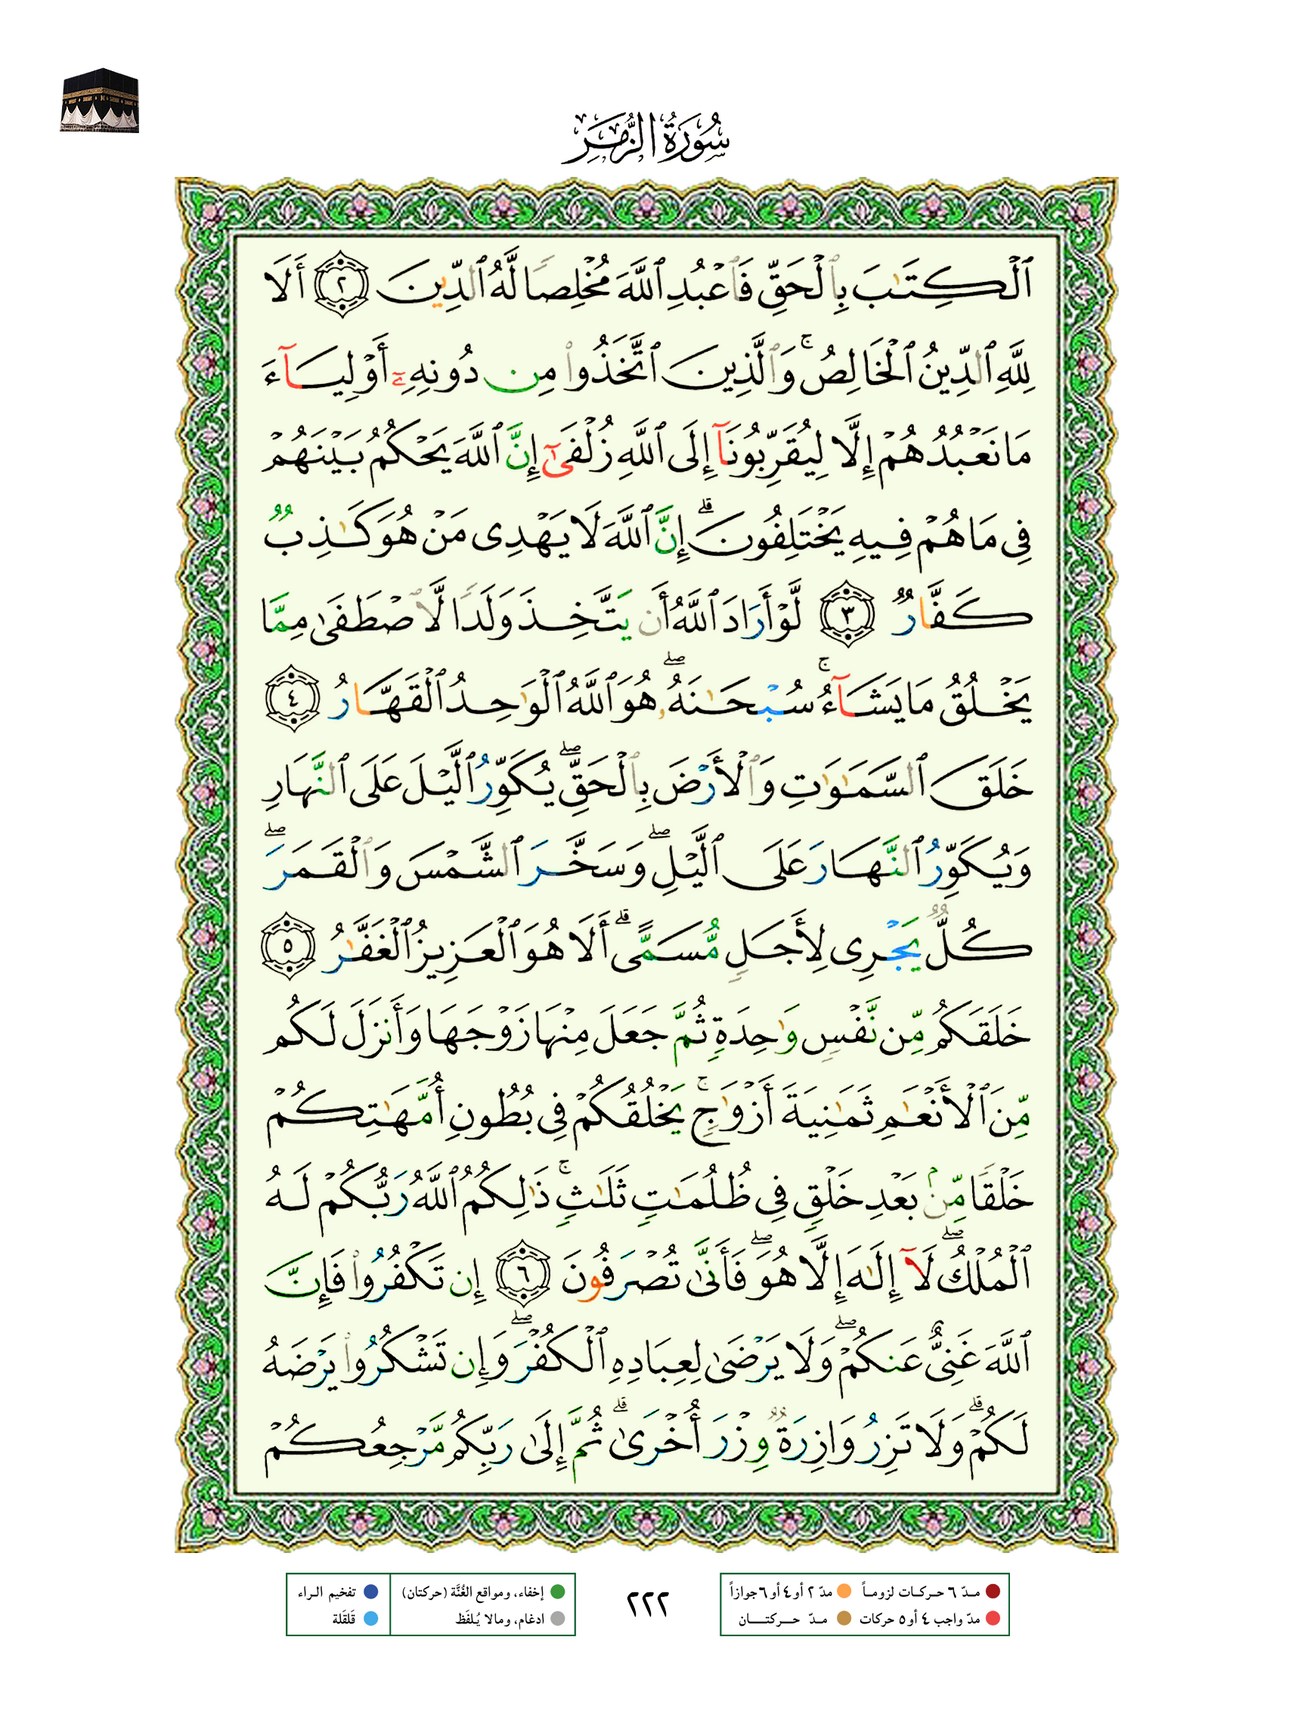 سُورَةُ الزُّمَرِ
ٱلْكِتَـٰبَ بِٱلْحَقِّ فَٱعْبُدِ ٱللَّهَ مُخْلِصًا لَّهُ ٱلدِّينَ ٢ أَلَا
لِلَّهِ ٱلدِّينُ ٱلْخَالِصُ ۚ وَٱلَّذِينَ ٱتَّخَذُوا۟ مِن دُونِهِۦٓ أَوْلِيَآءَ
مَا نَعْبُدُهُمْ إِلَّا لِيُقَرِّبُونَآ إِلَى ٱللَّهِ زُلْفَىٰٓ إِنَّ ٱللَّهَ يَحْكُمُ بَيْنَهُمْ
فِى مَا هُمْ فِيهِ يَخْتَلِفُونَ ۗ إِنَّ ٱللَّهَ لَا يَهْدِى مَنْ هُوَ كَـٰذِبٌ
كَفَّارٌ ٣ لَّوْ أَرَادَ ٱللَّهُ أَن يَتَّخِذَ وَلَدًا لَّٱصْطَفَىٰ مِمَّا
يَخْلُقُ مَا يَشَآءُ ۚ سُبْحَـٰنَهُۥ ۖ هُوَ ٱللَّهُ ٱلْوَٰحِدُ ٱلْقَهَّارُ ٤
خَلَقَ ٱلسَّمَـٰوَٰتِ وَٱلْأَرْضَ بِٱلْحَقِّ ۖ يُكَوِّرُ ٱلَّيْلَ عَلَى ٱلنَّهَارِ
وَيُكَوِّرُ ٱلنَّهَارَ عَلَى ٱلَّيْلِ ۖ وَسَخَّرَ ٱلشَّمْسَ وَٱلْقَمَرَ ۖ
كُلٌّ يَجْرِى لِأَجَلٍ مُّسَمًّى ۗ أَلَا هُوَ ٱلْعَزِيزُ ٱلْغَفَّـٰرُ ٥
خَلَقَكُم مِّن نَّفْسٍ وَٰحِدَةٍ ثُمَّ جَعَلَ مِنْهَا زَوْجَهَا وَأَنزَلَ لَكُم
مِّنَ ٱلْأَنْعَـٰمِ ثَمَـٰنِيَةَ أَزْوَٰجٍ ۚ يَخْلُقُكُمْ فِى بُطُونِ أُمَّهَـٰتِكُمْ
خَلْقًا مِّنۢ بَعْدِ خَلْقٍ فِى ظُلُمَـٰتٍ ثَلَـٰثٍ ۚ ذَٰلِكُمُ ٱللَّهُ رَبُّكُمْ لَهُ
ٱلْمُلْكُ ۖ لَآ إِلَـٰهَ إِلَّا هُوَ ۖ فَأَنَّىٰ تُصْرَفُونَ ٦ إِن تَكْفُرُوا۟ فَإِنَّ
ٱللَّهَ غَنِىٌّ عَنكُمْ ۖ وَلَا يَرْضَىٰ لِعِبَادِهِ ٱلْكُفْرَ ۖ وَإِن تَشْكُرُوا۟ يَرْضَهُ
لَكُمْ ۗ وَلَا تَزِرُ وَازِرَةٌ وِزْرَ أُخْرَىٰ ۗ ثُمَّ إِلَىٰ رَبِّكُم مَّرْجِعُكُمْ
مدّ ٦ حركات لزوماً مدّ ٢ أو ٤ أو ٦ جوازاً
مدّ واجب ٤ أو ٥ حركات مدّ حركتان
٢٢٢
إخفاء، ومواقع الغُنَّة (حركتان) تفخيم الراء
ادغام، ومالا يُلفَظ قلقلة